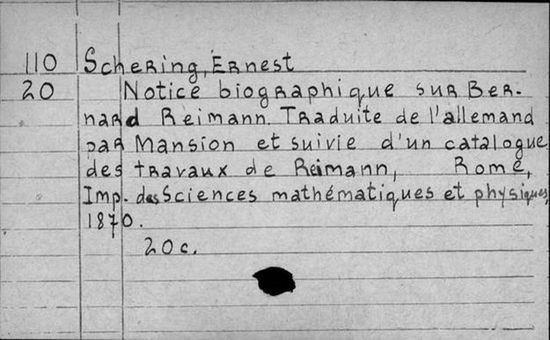 110 Schering, Ernest
20 Notice biographique sur Ber-
nard Reimann. Traduite de l'allemand
par Mansion et suivie d'un catalogue
des travaux de Reimann, Rome,
Imp. des Sciences mathématiques et physiques,
1870.
20c.